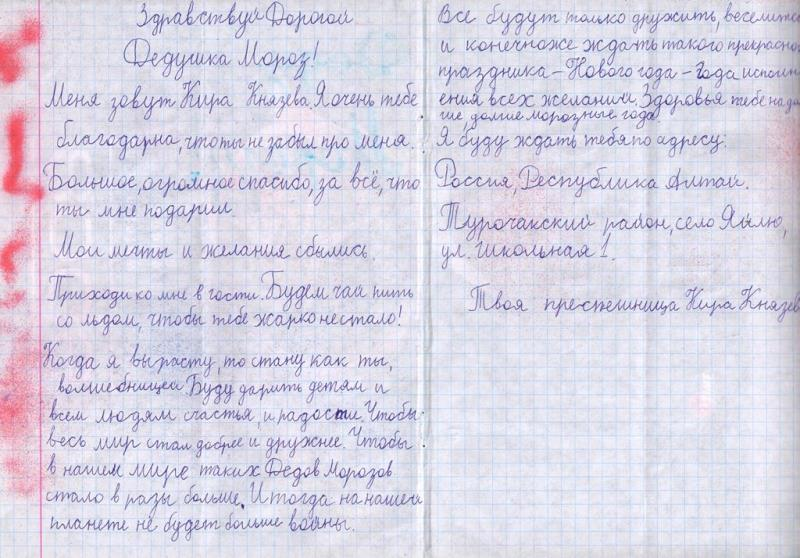 Здравствуй Дорогой
Дедушка Мороз!
Меня зовут Кира Князева. Я очень тебе
благодарна, что ты не забыл про меня.
Большое, огромное спасибо, за всё, что
ты мне подарил.
Мои мечты и желания сбылись.
Приходи ко мне в гости. Будем чай пить
со льдом, чтобы тебе жарко не стало!
Когда я вырасту, то стану как ты,
волшебницей. Буду дарить детям и
всем людям счастья, и радости. Чтобы
весь мир стал добрее и дружнее. Чтобы
в нашем мире таких Дедов Морозов
стало в разы больше. И тогда на нашей
планете не будет больше войны.
Все будут только дружить, веселитс
и конечноже ждать такого прекрасно
праздника – Нового года – года исполн
ения всех желаний. Здоровья тебе на до
гие, долгие морозные года.
Я буду ждать тебя по адресу:
Россия, Республика Алтай.
Турочакский район, село Яйлю,
ул. Школьная 1.
Твоя преемница Кира Князев